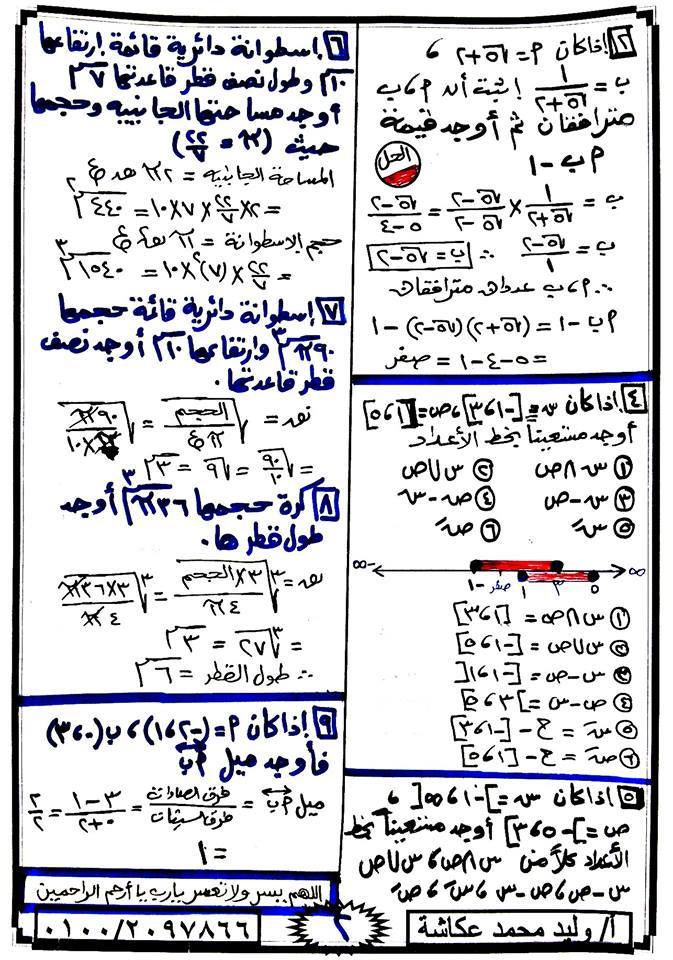 ٢ إذا كان م = √٥ + ٢ ،
ب = ١ / (√٥ + ٢) إثبت أن م ، ب
مترافقان ثم أوجد قيمة
م ب - ١
الحل
ب = ١ / (√٥ + ٢) × (√٥ - ٢) / (√٥ - ٢) = (√٥ - ٢) / (٥ - ٤)
ب = (√٥ - ٢) / ١ ∴ ب = √٥ - ٢
∴ م ، ب عددان مترافقان
م ب - ١ = (√٥ + ٢)(√٥ - ٢) - ١
= ٥ - ٤ - ١ = صفر
٤ إذا كان س = [-١ ، ٣] ، ص = [١ ، ٥]
أوجد مستعيناً بخط الأعداد
① س ∩ ص ② س ∪ ص
③ س - ص ④ ص - س
⑤ سَ ⑥ صَ
-∞ -١ صفر ١ ٣ ٥ ∞
① س ∩ ص = [١ ، ٣]
② س ∪ ص = [-١ ، ٥]
③ س - ص = [-١ ، ١[
④ ص - س = ]٣ ، ٥]
⑤ سَ = ح - [-١ ، ٣]
⑥ صَ = ح - [١ ، ٥]
٥ إذا كان س = [-١ ، ∞[ ،
ص = ]-٥ ، ٣] أوجد مستعيناً بخط
الأعداد كلاً من س ∩ ص ، س ∪ ص
س - ص ، ص - س ، سَ ، صَ
٦ إسطوانة دائرية قائمة إرتفاعها
١٠ سم وطول نصف قطر قاعدتها ٧ سم
أوجد مساحتها الجانبية وحجمها
حيث (π = ٢٢/٧)
المساحة الجانبية = ٢ π نق ع
= ٢ × ٢٢/٧ × ٧ × ١٠ = ٤٤٠ سم٢
حجم الإسطوانة = π نق٢ ع
= ٢٢/٧ × (٧)٢ × ١٠ = ١٥٤٠ سم٣
٧ إسطوانة دائرية قائمة حجمها
٩٠ π سم٣ وارتفاعها ١٠ سم أوجد نصف
قطر قاعدتها .
نق = √(الحجم / π ع) = √(٩٠ π / ١٠ × π)
= √(٩٠/١٠) = √٩ = ٣ سم
٨ كرة حجمها ٣٦ π سم٣ أوجد
طول قطرها .
نق = ∛(٣ × الحجم / ٤ π) = ∛(٣ × ٣٦ π / ٤ π)
= ∛٢٧ = ٣ سم
∴ طول القطر = ٦ سم
٩ إذا كان م = (-٢ ، ١) ، ب (٠ ، ٣)
فأوجد ميل م ب
ميل م ب = فرق الصادات / فرق السينات = (٣ - ١) / (٠ + ٢) = ٢/٢
= ١
اللهم يسر ولا تعسر يارب يا أرحم الراحمين
أ/ وليد محمد عكاشة
٢
٠١٠٠/٢٠٩٧٨٦٦